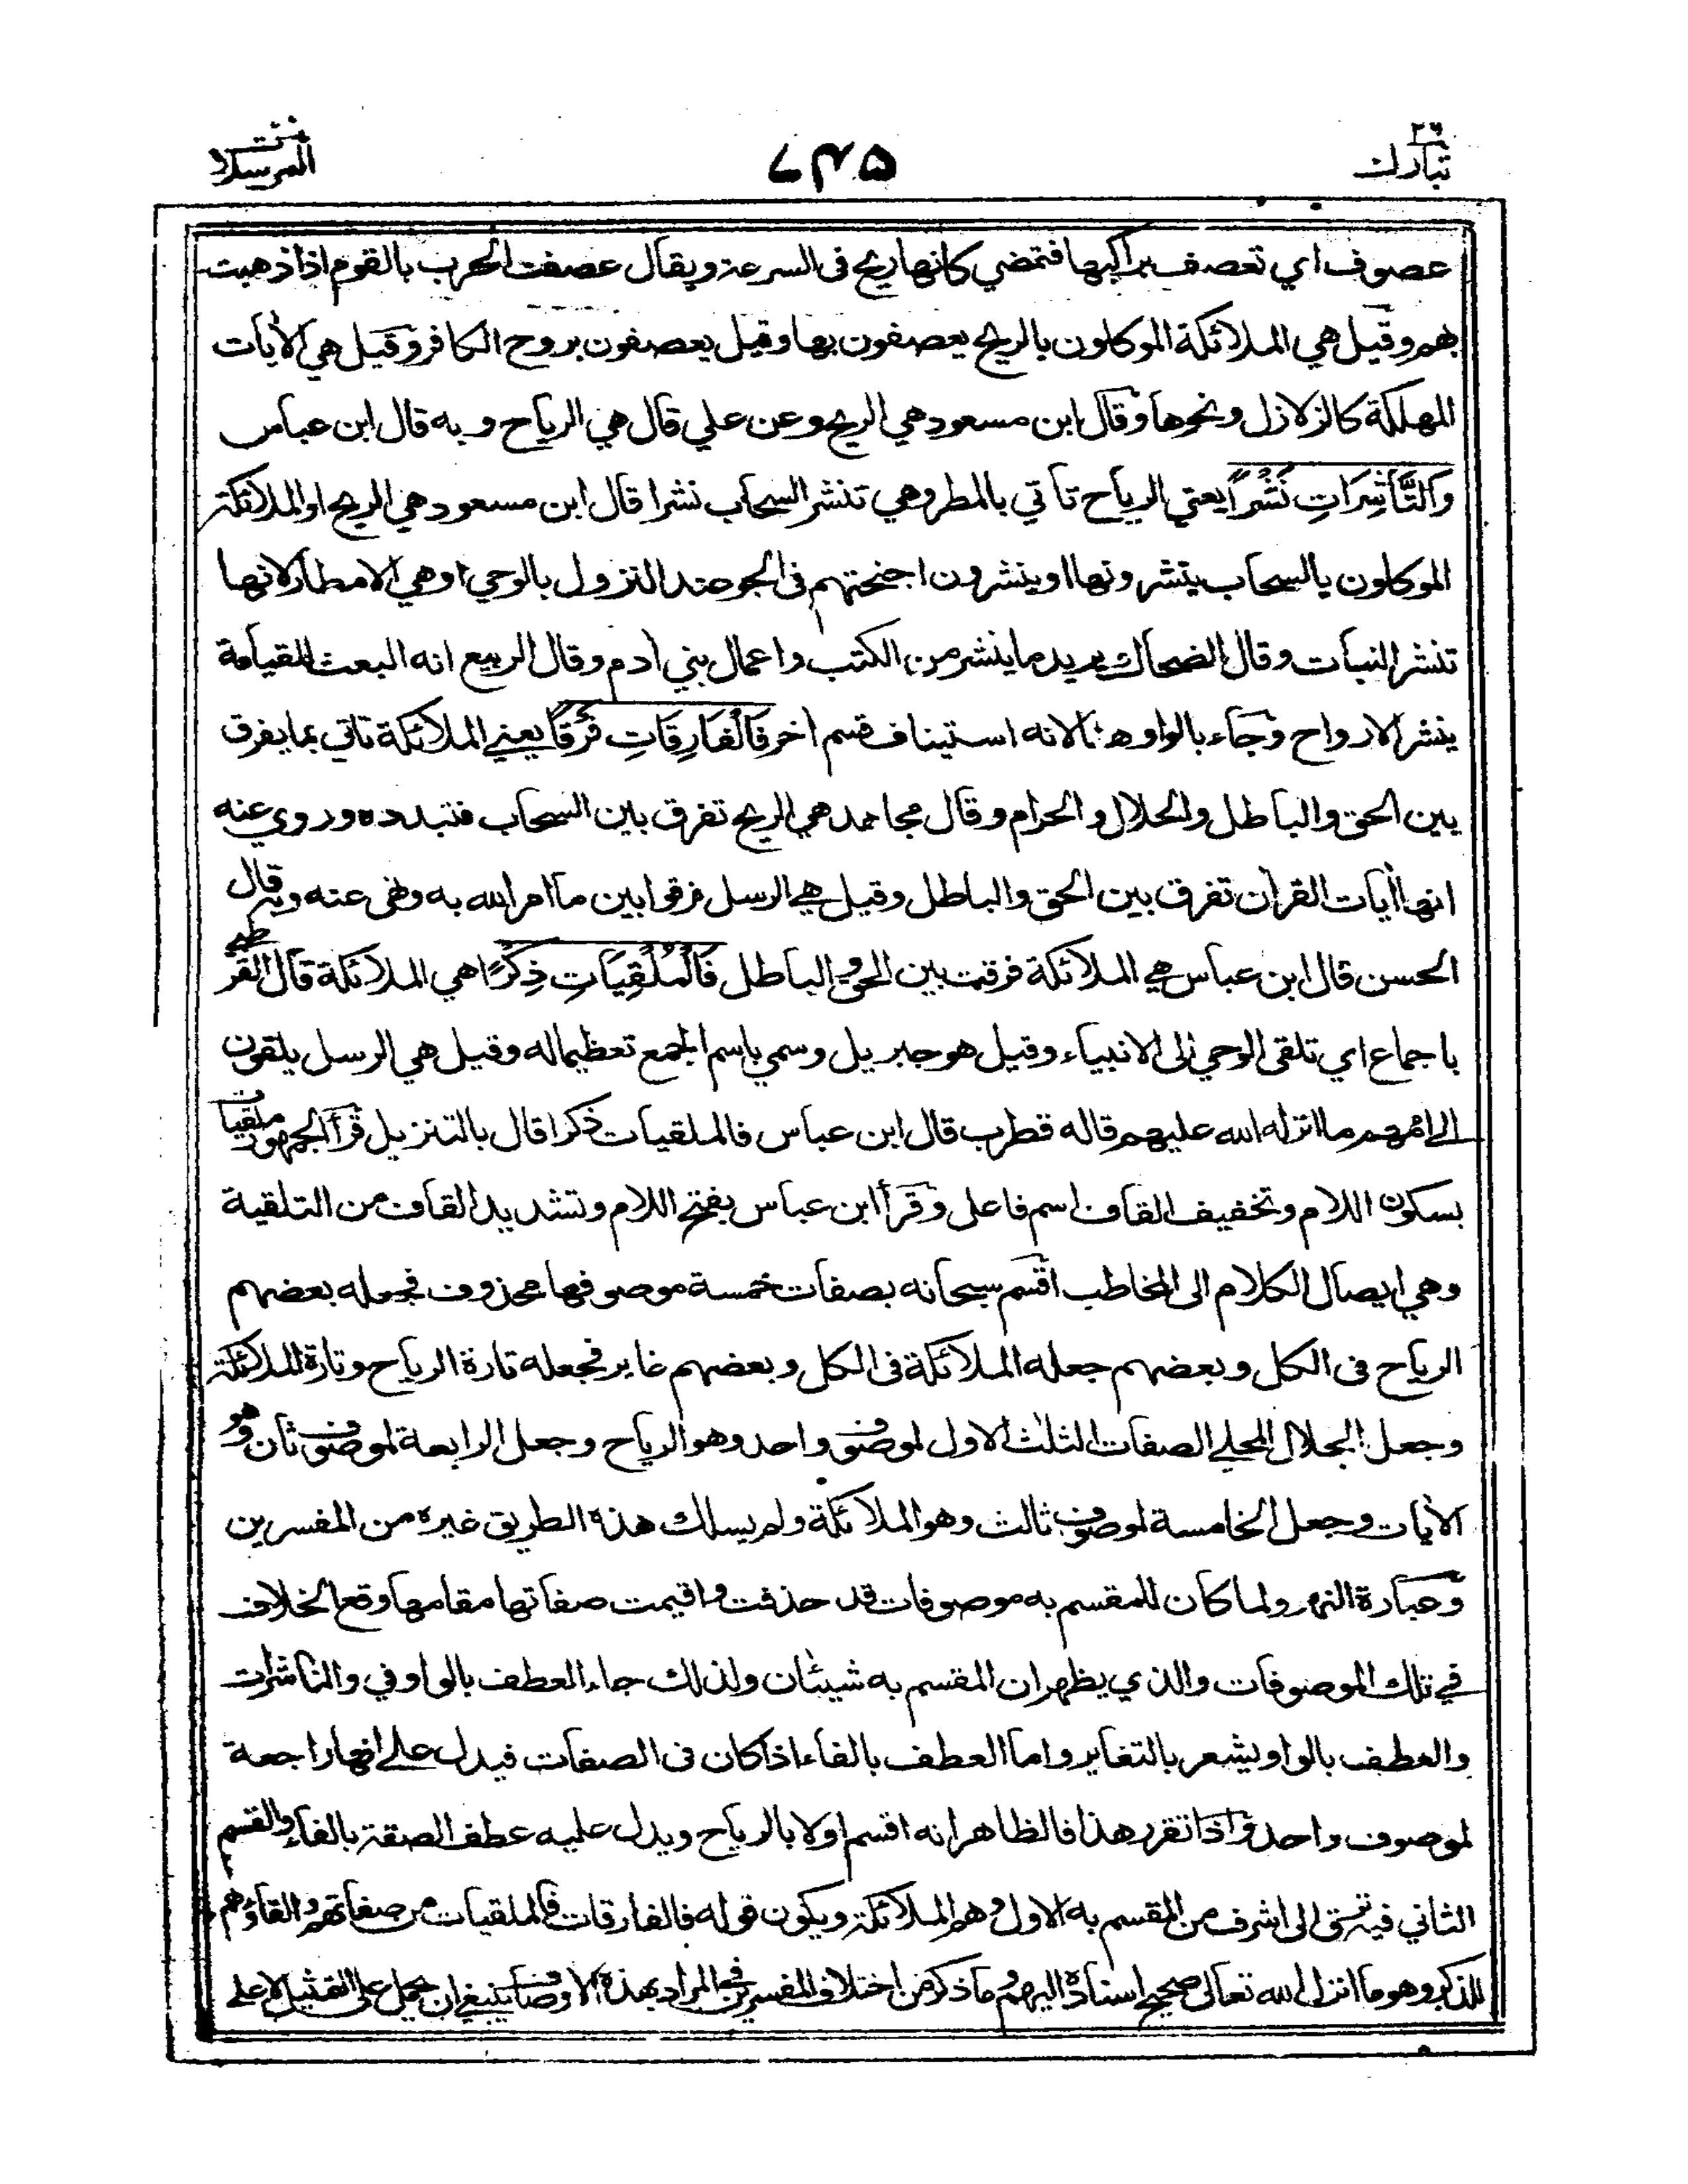 تبارك ٢٩
٧٣٥
المرسلات
عصوف اي تعصف براكبها فتمضي كانها ريح فى السرعة ويقال عصفت الحرب بالقوم اذا ذهبت
بهم وقيل هي الملائكة الموكلون بالريح يعصفون بها وقيل يعصفون بروح الكافر وقيل هي الأيات
المهلكة كالزلازل ونحوها وقال ابن مسعود هي الريح وعن علي قال هي الرياح وبه قال ابن عباس
وَالنَّاشِرَاتِ نَشْرًا يعني الرياح تاتي بالمطر وهي تنشر السحاب نشرا قال ابن مسعود هي الريح او الملائكة
الموكلون بالسحاب ينشرونها او ينشرون اجنحتهم فى الجو عند النزول بالوحي او هي الامطار لانها
تنشر النبات وقال الضحاك يريد ما ينشر من الكتب واعمال بني أدم وقال الربيع انه البعث للقيامة
ينشر الارواح وجاء بالواو هنا لانه استيناف قسم اخر فَالْفَارِقَاتِ فَرْقًا يعني الملائكة تاتي بما يفرق
بين الحق والباطل والحلال والحرام وقال مجاهد هي الريح تفرق بين السحاب فتبدده وروي عنه
انها أيات القرأن تفرق بين الحق والباطل وقيل هي الرسل فرقوا بين ما امر الله به ونهى عنه وبه قال
الحسن قال ابن عباس هي الملائكة فرقت بين الحق والباطل فَالْمُلْقِيَاتِ ذِكْرًا هي الملائكة قال القرطبي
باجماع اي تلقى الوحي الى الانبياء وقيل هو جبريل وسمي باسم الجمع تعظيما له وقيل هي الرسل يلقون
الى اممهم ما انزله الله عليهم قاله قطرب قال ابن عباس فالملقيات ذكرا قال بالتنزيل قرأ الجمهور ملقيات
بسكون اللام وتخفيف القاف اسم فاعل وقرأ ابن عباس بفتح اللام وتشديد القاف من التلقية
وهي ايصال الكلام الى المخاطب اقسم سبحانه بصفات خمسة موصوفها محذوف فجعله بعضهم
الرياح فى الكل وبعضهم جعله الملائكة فى الكل وبعضهم غاير فجعله تارة الرياح وتارة الملائكة
وجعل الجلال المحلي الصفات الثلث الاول لموصوف واحد وهو الرياح وجعل الرابعة لموصوف ثان وهو
الأيات وجعل الخامسة لموصوف ثالث وهو الملائكة ولم يسلك هذه الطريق غيره من المفسرين
وعبارة النهر ولما كان للمقسم به موصوفات قد حذفت واقيمت صفاتها مقامها وقع الخلاف
في تلك الموصوفات والذي يظهر ان المقسم به شيئان ولذلك جاء العطف بالواو في والناشرات
والعطف بالواو يشعر بالتغاير واما العطف بالفاء اذا كان فى الصفات فيدل على انها راجعة
لموصوف واحد واذا تقرر هذا فالظاهر انه اقسم اولا بالرياح ويدل عليه عطف الصفة بالفاء والقسم
الثاني فيه ترق الى اشرف من المقسم به الاول وهو الملائكة ويكون قوله فالفارقات فالملقيات من صفاتهم والقاؤهم
للذكر وهو ما انزل الله تعالى صحيح اسناده اليهم وما ذكر من اختلاف المفسرين فى المراد بهذه الاوصاف ينبغي ان يحمل على التمثيل لا على